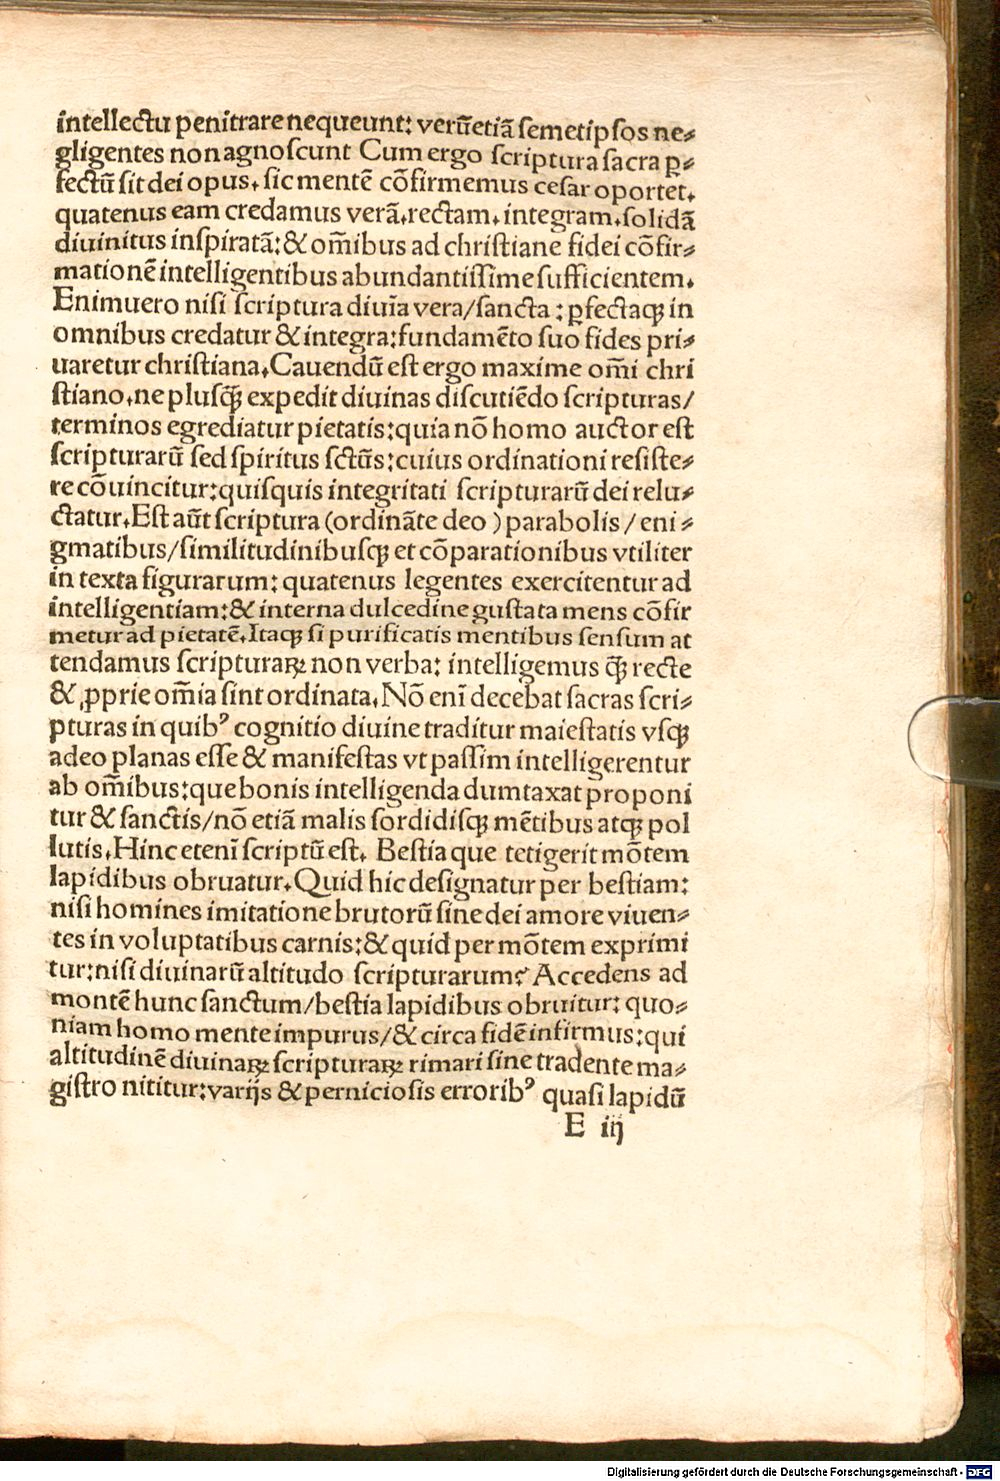 intellectu penitrare nequeunt: verūetiā semetipsos ne⸗
gligentes non agnoscunt Cum ergo scriptura sacra ꝑ⸗
fectū sit dei opus. sic mentē cōfirmemus cesar oportet.
quatenus eam credamus verā.rectam. integram.solidā
diuinitus inspiratā:& om̄ibus ad christiane fidei cōfir⸗
mationē intelligentibus abundantissime sufficientem.
Enimuero nisi scriptura diuīa vera/sancta : ꝑfectaqꝫ in
omnibus credatur & integra:fundamēto suo fides pri⸗
uaretur christiana.Cauendū est ergo maxime om̄i chri
stiano.ne plusq̄ꝫ expedit diuinas discutiēdo scripturas/
terminos egrediatur pietatis:quia nō homo auctor est
scripturarū sed spiritus sctūs:cuius ordinationi resiste⸗
re cōuincitur:quisquis integritati scripturarū dei relu⸗
ctatur.Est aūt scriptura (ordināte deo ) parabolis/ eni⸗
gmatibus/similitudinibusqꝫ et cōparationibus vtiliter
in texta figurarum: quatenus legentes exercitentur ad
intelligentiam:& interna dulcedine gustata mens cōfir
metur ad pietatē.Itaqꝫ si purificatis mentibus sensum at
tendamus scripturaꝝ non verba: intelligemus q̄ꝫ recte
& ꝓprie om̄ia sint ordinata. Nō enī decebat sacras scri⸗
pturas in quibꝰ cognitio diuine traditur maiestatis vsqꝫ
adeo planas esse & manifestas vt passim intelligerentur
ab om̄ibus:que bonis intelligenda dumtaxat proponi
tur & sanctis/nō etiā malis sordidisqꝫ mētibus atqꝫ pol
lutis.Hinc etenī scriptū est. Bestia que tetigerit mōtem
lapidibus obruatur.Quid hic designatur per bestiam:
nisi homines imitatione brutorū sine dei amore viuen⸗
tes in voluptatibus carnis:& quid per mōtem exprimi
tur:nisi diuinarū altitudo scripturarum? Accedens ad
montē hunc sanctum/bestia lapidibus obruitur: quo⸗
niam homo mente impurus/& circa fidē infirmus:qui
altitudinē diuinaꝝ scripturaꝝ rimari sine tradente ma⸗
gistro nititur:varijs & perniciosis erroribꝰ quasi lapidū
E iij
Digitalisierung gefördert durch die Deutsche Forschungsgemeinschaft - DFG